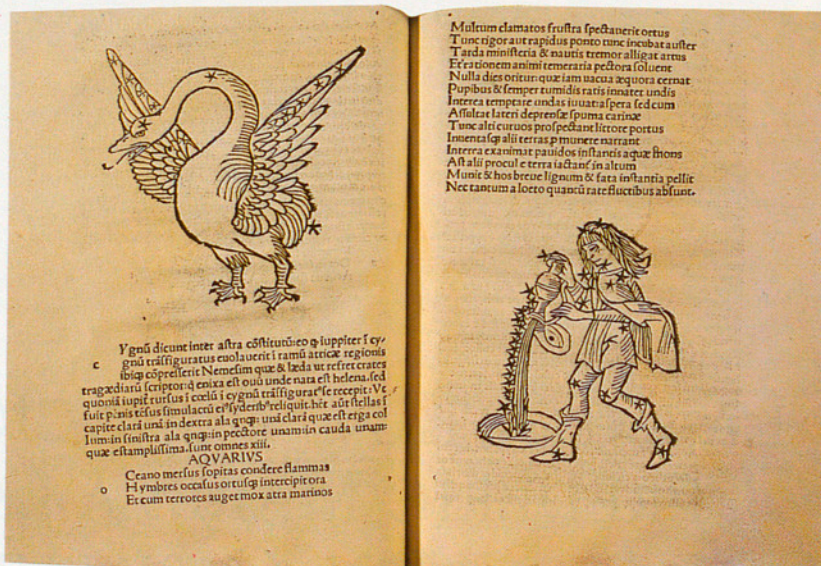 Ygnũ dicunt inter astra cõstitutũ:eo ꝙ iuppiter ĩ cy-
c gnũ trãsfiguratus euolauerit ĩ ramũ atticæ regionis
ibiqꝫ cõpresserit Nemesim quæ & læda ut refert crates
tragædiarũ scriptor:q̇ enixa est ouũ unde nata est helena.sed
quoniã iupiť rursus ĩ cœlũ ĩ cygnũ trãsfigurat⁹se recepit:Vt
fuit simulacrũ reliquit.hẽt aũt stellas ĩ
capite clarã unã in dextra ala qnqꝫ: unã clarã quæ est erga col
lum:in sinistra ala qnqꝫ:in pectore unam:in cauda unam:
quæ est amplissima.sunt omnes xiii.
AQVARIVS
Ceano mersus sopitas condere flammas
o Hymbres occasus ortusqꝫ intercipit ora
Et cum terrores auget mox atra marinos
Multum clamatos frustra spectauerit ortus
Tunc rigor aut rapidus ponto tunc incubat auster
Tarda ministeria & nautis tremor alligat artus
Et rationem animi temeraria pectora soluent
Nulla dies oritur quæ iam uacua æquora cernat
Pupibus & semper tumidis ratis innatet undis
Interea temptare undas iuuat aspera sed cum
Assultat lateri deprensæ spuma carinæ
Tunc alti curuos prospectant littore portus
Inuentasqꝫ alii terras ꝑ munere narrant
Interea exanimat pauidos instantis aquæ
Ast alii procul e terra iactant̃ in altum
Munit & hos breue lignum & fata instantia pellit
Nec tantum a loeto quantũ rate fluctibus absunt.